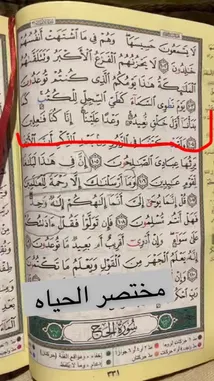 لَا يَسْمَعُونَ حَسِيسَهَا وَهُمْ فِي مَا اشْتَهَتْ أَنفُسُهُمْ
خَالِدُونَ ١٠٢ لَا يَحْزُنُهُمُ الْفَزَعُ الْأَكْبَرُ وَتَتَلَقَّاهُمُ
الْمَلَائِكَةُ هَذَا يَوْمُكُمُ الَّذِي كُنتُمْ تُوعَدُونَ
١٠٣ يَوْمَ نَطْوِي السَّمَاءَ كَطَيِّ السِّجِلِّ لِلْكُتُبِ كَمَا
بَدَأْنَا أَوَّلَ خَلْقٍ نُّعِيدُهُ وَعْدًا عَلَيْنَا إِنَّا كُنَّا فَاعِلِينَ
١٠٤ وَلَقَدْ كَتَبْنَا فِي الزَّبُورِ مِن بَعْدِ الذِّكْرِ أَنَّ الْأَرْضَ
يَرِثُهَا عِبَادِيَ الصَّالِحُونَ ١٠٥ إِنَّ فِي هَذَا لَبَلَاغًا
لِّقَوْمٍ عَابِدِينَ ١٠٦ وَمَا أَرْسَلْنَاكَ إِلَّا رَحْمَةً لِّلْعَالَمِينَ
١٠٧ قُلْ إِنَّمَا يُوحَى إِلَيَّ أَنَّمَا إِلَهُكُمْ إِلَهٌ وَاحِدٌ
فَهَلْ أَنتُم مُّسْلِمُونَ ١٠٨ فَإِن تَوَلَّوْا فَقُلْ آذَنتُكُمْ
عَلَى سَوَاءٍ وَإِنْ أَدْرِي أَقَرِيبٌ أَم بَعِيدٌ مَّا تُوعَدُونَ
١٠٩ إِنَّهُ يَعْلَمُ الْجَهْرَ مِنَ الْقَوْلِ وَيَعْلَمُ مَا تَكْتُمُونَ
مختصر الحياه
سُورَةُ الْحَجِّ
٣٣١